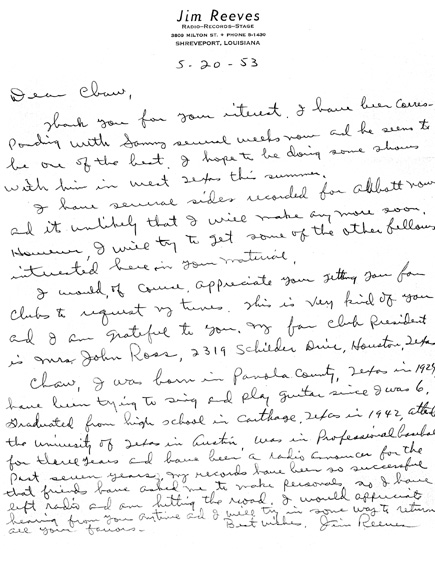 Jim Reeves
RADIO-RECORDS-STAGE
3809 MILTON ST. • PHONE 5-1430
SHREVEPORT, LOUISIANA
5-20-53
Dear Chaw,
Thank you for your interest. I have been corres-
ponding with Sammy several weeks now and he seems to
be one of the best. I hope to be doing some shows
with him in west Texas this summer.
I have several sides recorded for Abbott now
and it unlikely that I will make any more soon.
However, I will try to get some of the other fellows
interested here in your material.
I would, of course, appreciate your getting your fan
clubs to request my tunes. This is very kind of you
and I am grateful to you. My fan club President
is Mrs. John Ross, 2319 Schilder Drive, Houston, Texas
Chaw, I was born in Panola County, Texas in 1924
have been trying to sing and play guitar since I was 6.
Graduated from high school in Carthage, Texas in 1942, atted
the university of Texas in Austin was in Professional baseball
for three years and have been a radio announcer for the
Past seven years. My records have been so successful
that friends have asked me to make personals, so I have
left radio and am hitting the road. I would appreciate
hearing from you anytime and I will try in some way to return
all your favors. - Best wishes, Jim Reeves